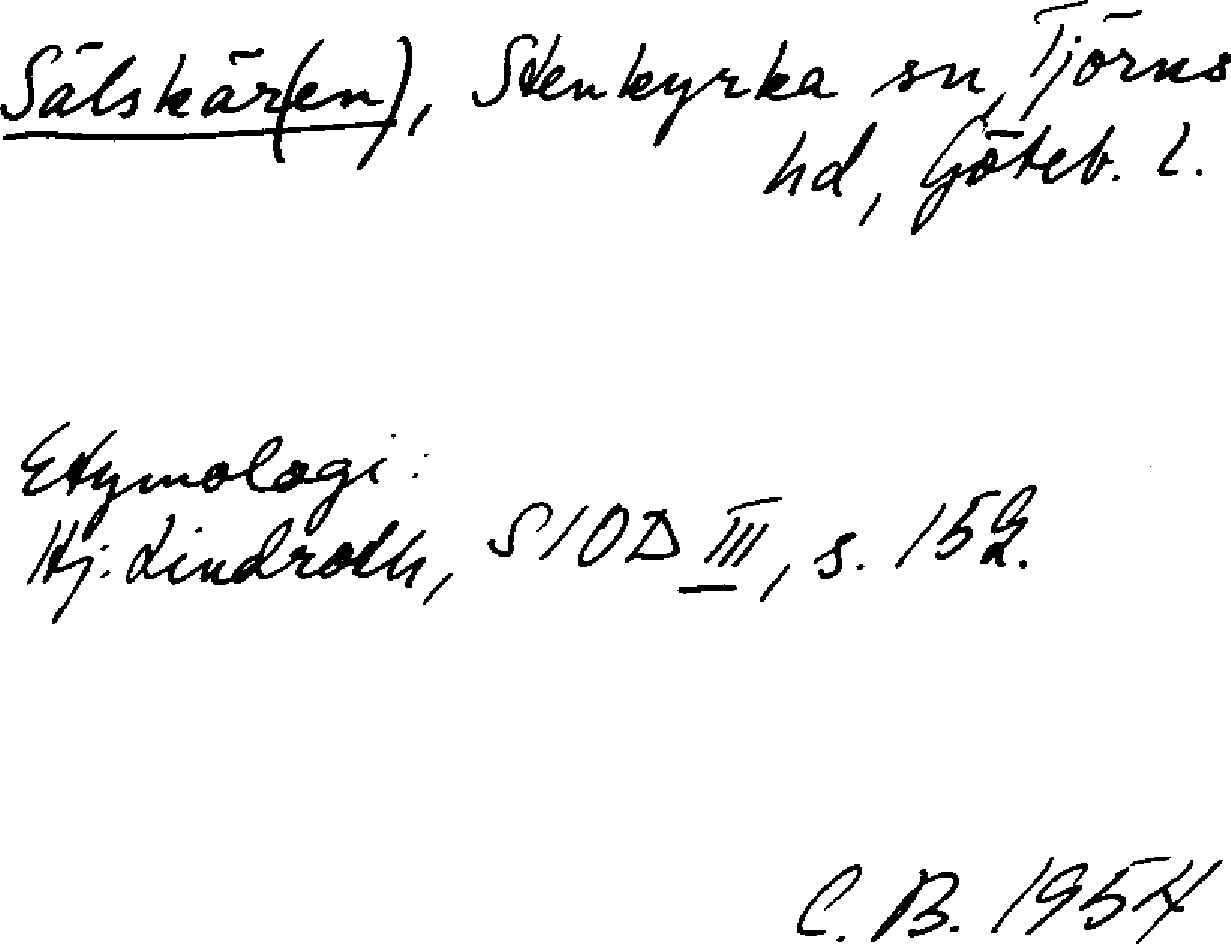 Sälskär(en), Stenkyrka sn, Tjörns
hd, Göteb. l.
Etymologi:
Hj. Lindroth, SIOD III, s. 152.
C. B. 1954